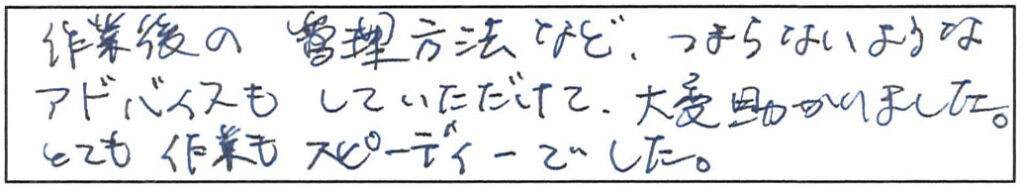 作業後の管理方法など、つまらないような
アドバイスも していただけて、大変助かりました。
とても 作業も スピーディーでした。